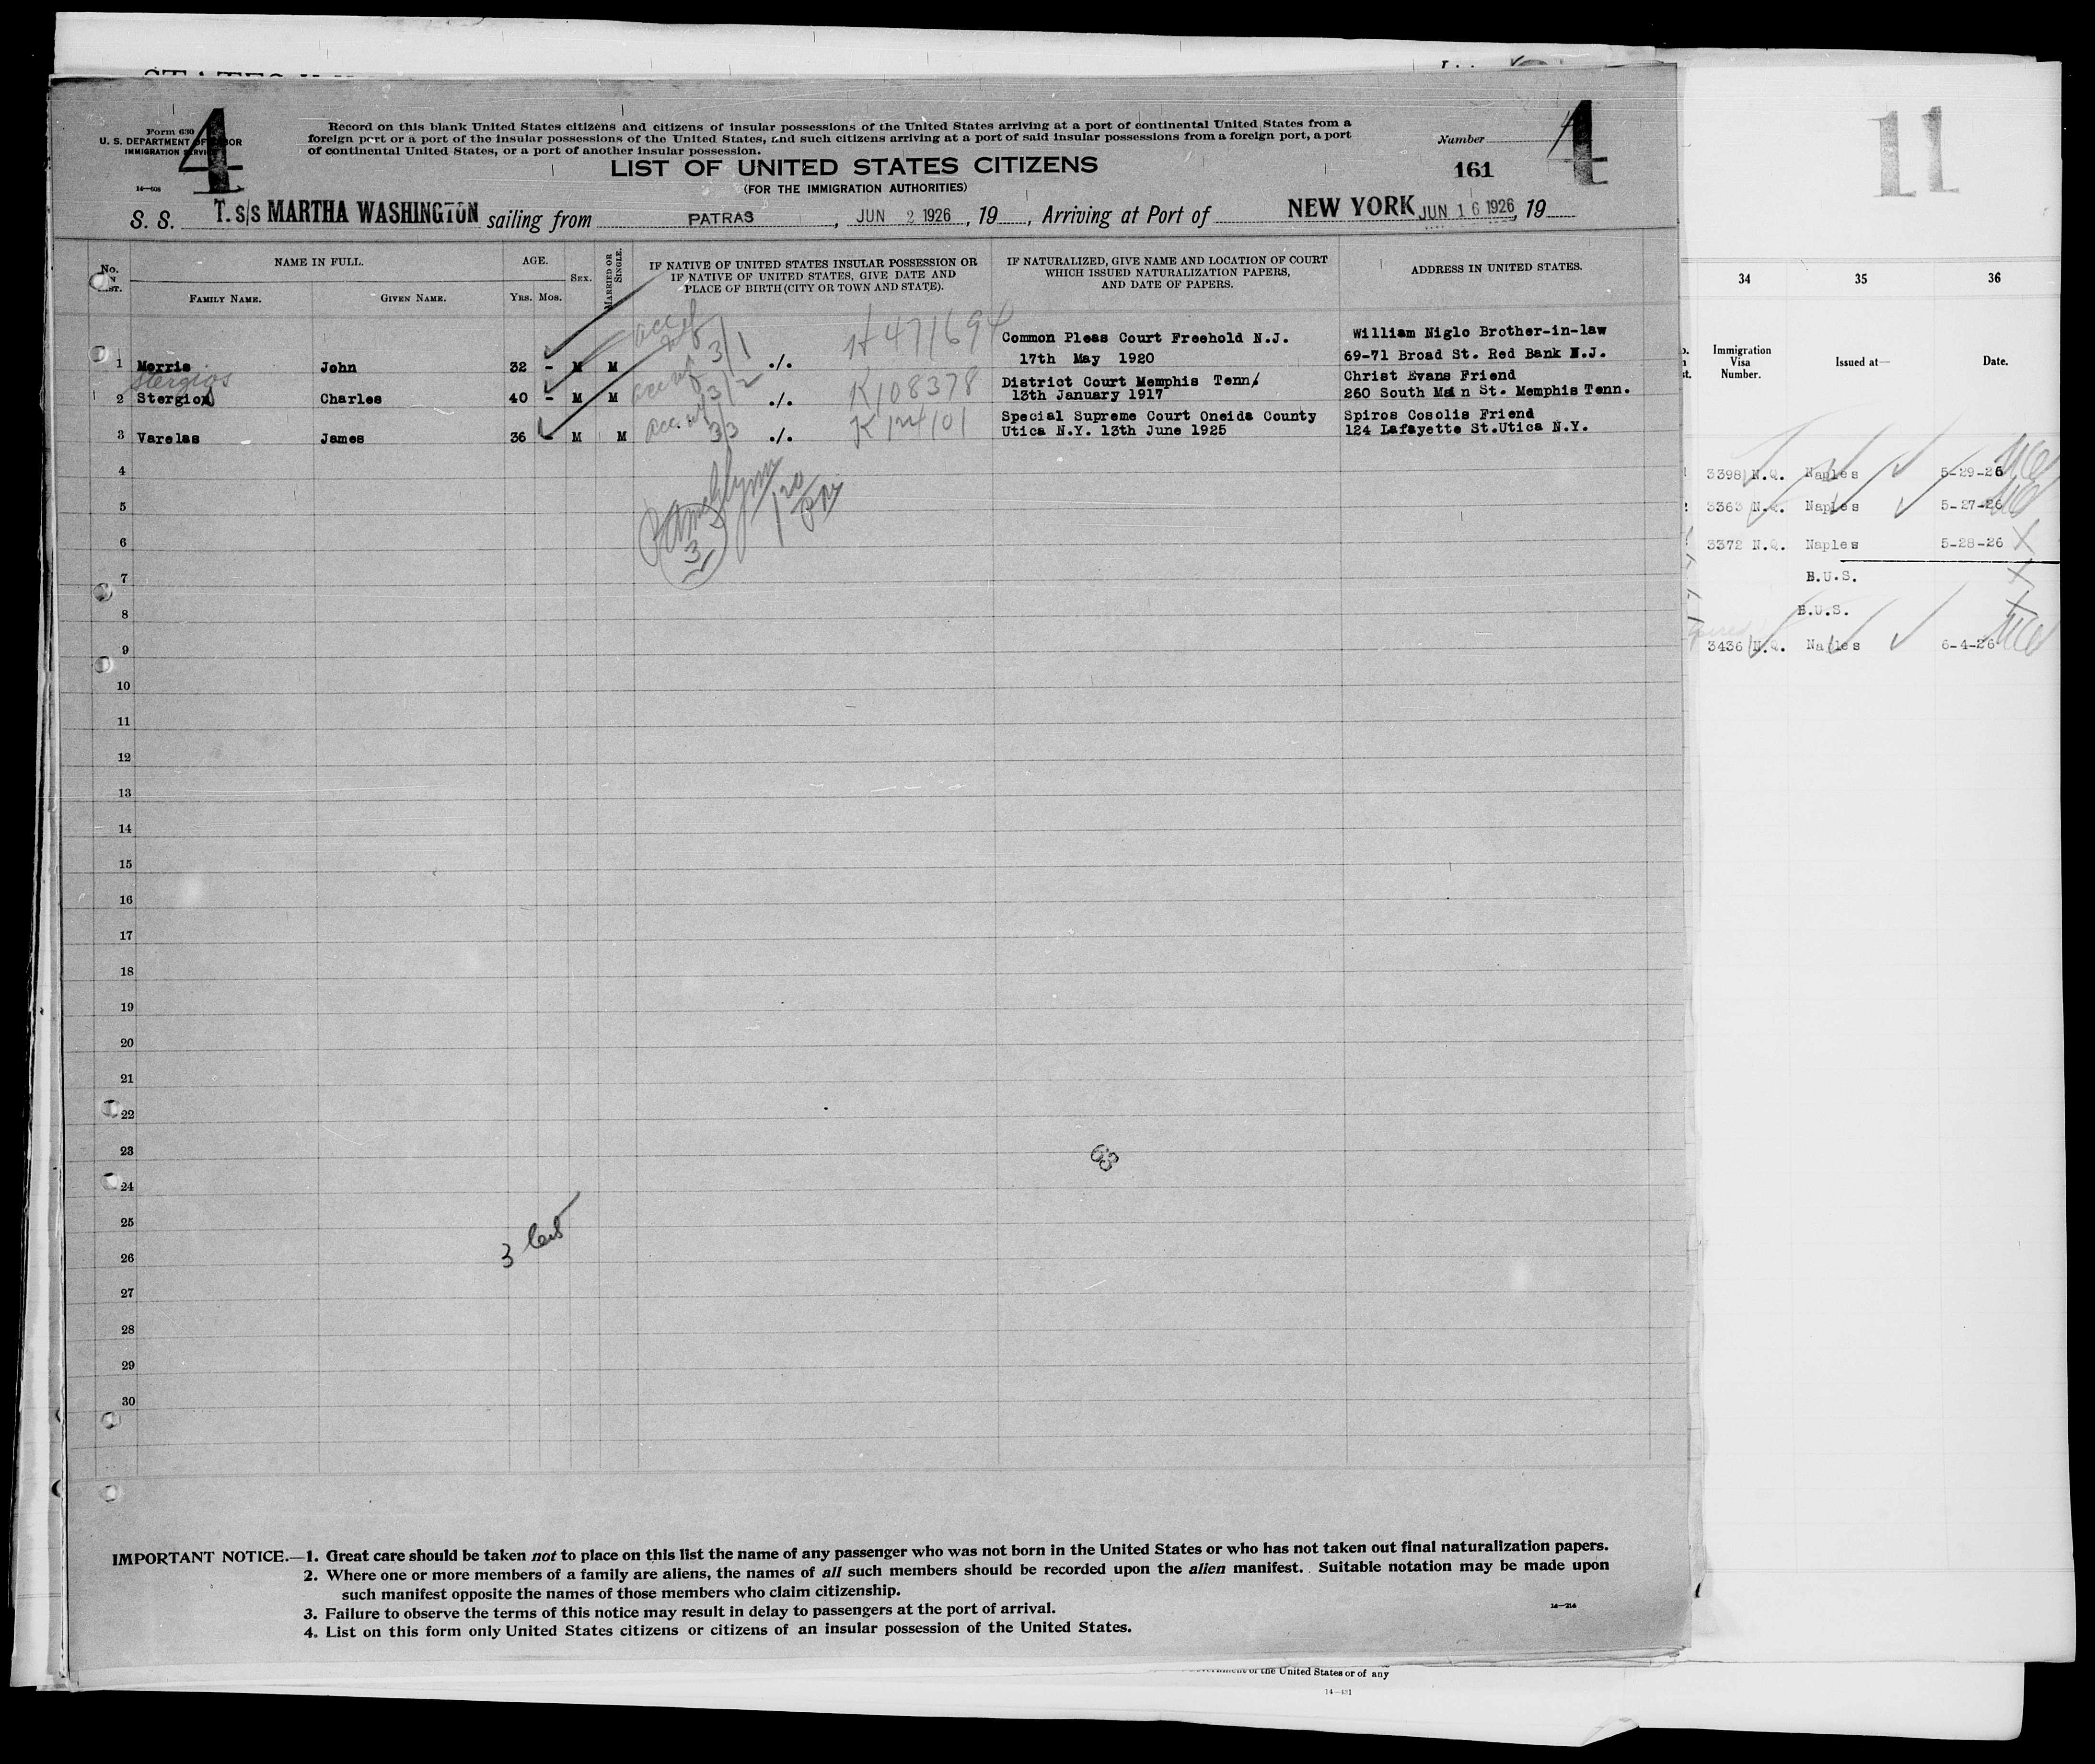 4
Form 630
U. S. DEPARTMENT OF LABOR
IMMIGRATION SERVICE
14—608
Record on this blank United States citizens and citizens of insular possessions of the United States arriving at a port of continental United States from a
foreign port or a port of the insular possessions of the United States, and such citizens arriving at a port of said insular possessions from a foreign port, a port
of continental United States, or a port of another insular possession.
LIST OF UNITED STATES CITIZENS
(FOR THE IMMIGRATION AUTHORITIES)
Number
161
4
11
S. S. T. s/s MARTHA WASHINGTON sailing from PATRAS, JUN 2 1926, 19, Arriving at Port of NEW YORK JUN 16 1926, 19
No. NAME IN FULL. AGE. SEX. MARRIED OR SINGLE. IF NATIVE OF UNITED STATES INSULAR POSSESSION OR IF NATIVE OF UNITED STATES, GIVE DATE AND PLACE OF BIRTH (CITY OR TOWN AND STATE). IF NATURALIZED, GIVE NAME AND LOCATION OF COURT WHICH ISSUED NATURALIZATION PAPERS, AND DATE OF PAPERS. ADDRESS IN UNITED STATES.
FAMILY NAME. GIVEN NAME. YRS. MOS.
H471694 Common Pleas Court Freehold N.J. William Niglo Brother-in-law
1 Morris John 32 - M M 3/1 ./. 17th May 1920 69-71 Broad St. Red Bank N.J.
Stergios K108378 District Court Memphis Tenn. Christ Evans Friend
2 Stergiou Charles 40 - M M 3/2 ./. 13th January 1917 260 South Main St. Memphis Tenn.
K124101 Special Supreme Court Oneida County Spiros Cosolis Friend
3 Varelas James 36 - M M 3/3 ./. Utica N.Y. 13th June 1925 124 Lafayette St.Utica N.Y.
4
5
6
3
7
8
9
10
11
12
13
14
15
16
17
18
19
20
21
22
23
63
24
25
3
26
27
28
29
30
IMPORTANT NOTICE.—1. Great care should be taken not to place on this list the name of any passenger who was not born in the United States or who has not taken out final naturalization papers.
2. Where one or more members of a family are aliens, the names of all such members should be recorded upon the alien manifest. Suitable notation may be made upon
such manifest opposite the names of those members who claim citizenship.
3. Failure to observe the terms of this notice may result in delay to passengers at the port of arrival.
14—214
4. List on this form only United States citizens or citizens of an insular possession of the United States.
34 35 36
Immigration Visa Number. Issued at— Date.
3398 N.Q. Naples 5-29-26
3363 N.Q. Naples 5-27-26
3372 N.Q. Naples 5-28-26 X
B.U.S. X
B.U.S. X
3436 N.Q. Naples 6-4-26
of the United States or of any